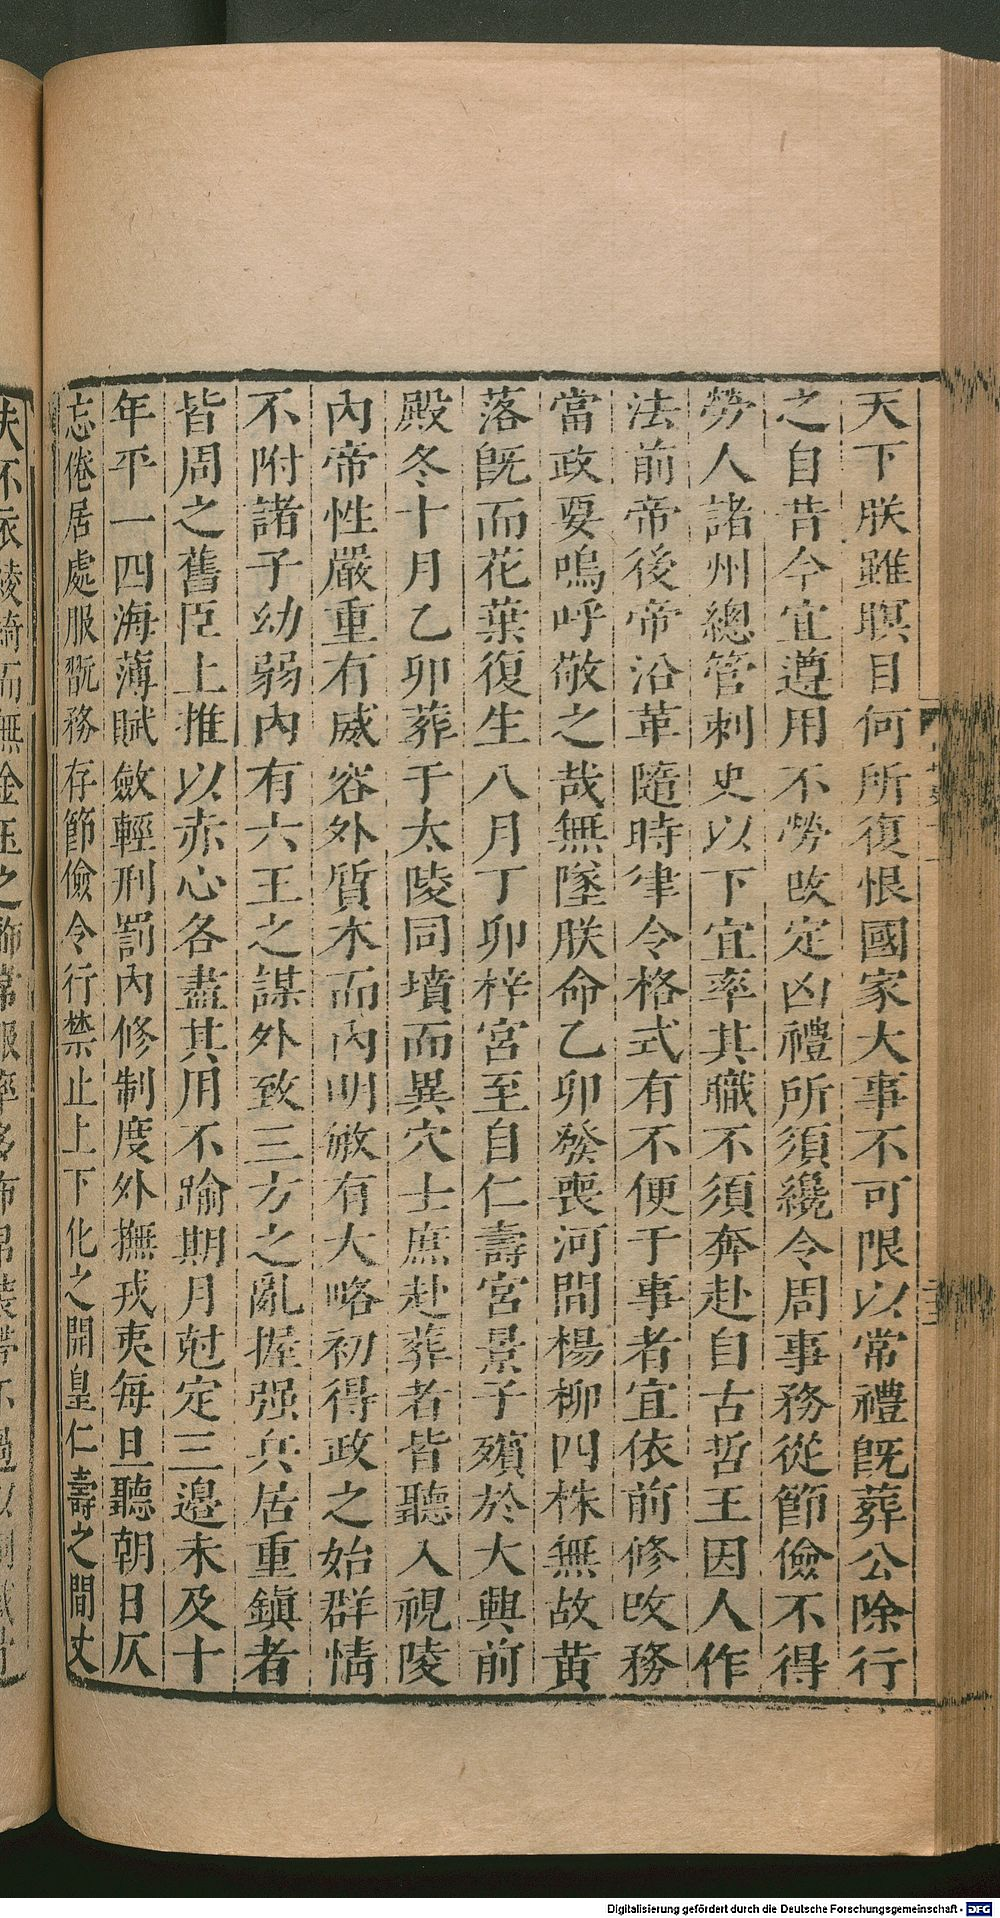 天下朕雖瞑目何所復恨國家大事不可限以常禮旣葬公除行
之自昔今宜遵用不勞改定凶禮所須纔令周事務從節儉不得
勞人諸州總管刺史以下宜率其職不須奔赴自古哲王因人作
法前帝後帝沿革隨時律令格式有不便于事者宜依前修改務
當政要嗚呼敬之哉無墜朕命乙卯發喪河間楊柳四株無故黄
落旣而花葉復生八月丁卯梓宮至自仁壽宮景子殯於大興前
殿冬十月乙卯葬于太陵同墳而異穴士庶赴葬者皆聽入視陵
內帝性嚴重有威容外質木而內明敏有大略初得政之始群情
不附諸子幼弱內有六王之謀外致三方之亂握强兵居重鎭者
皆周之舊臣上推以赤心各盡其用不踰期月尅定三邉未及十
年平一四海薄賦斂輕刑罰內修制度外撫戎夷每旦聽朝日仄
忘倦居處服翫務存節儉令行禁止上下化之開皇仁壽之間丈
夫不衣綾綺而無金玉之飾常服率多布帛裝帶不過以銅鐵骨
Digitalisierung gefördert durch die Deutsche Forschungsgemeinschaft - DFG